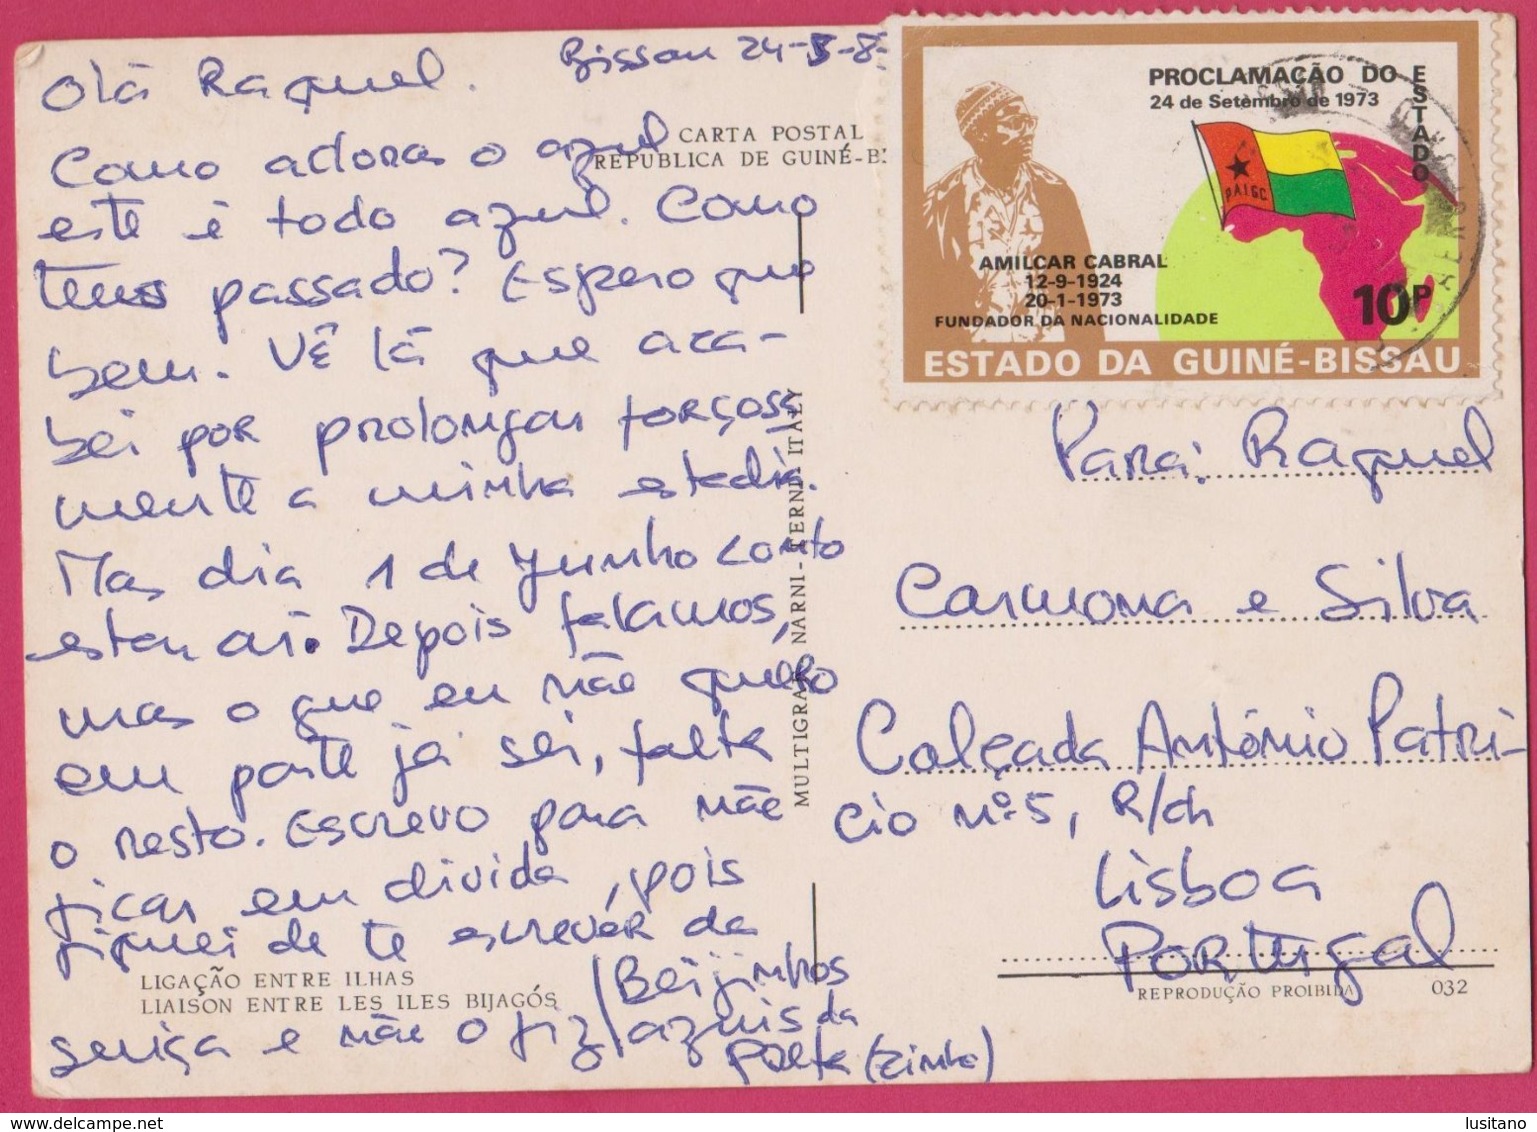 Bissau 24-5-8
Olá Raquel.
Como adoras o azul
este é todo azul. Como
tens passado? Espero que
bem. Vê lá que aca-
bei por prolongar forçosa
mente a minha estadia.
Mas dia 1 de Junho conto
estar aí. Depois falamos,
mas o que eu não quero
em parte já sei, falta
o resto. Escrevo para não
ficar em dívida, pois
fiquei de te escrever da
suiça e não o fiz
Beijinhos
azuis da
(zinha)
CARTA POSTAL
REPUBLICA DE GUINÉ-B
MULTIGRAF NARNI - TERNI ITALY
LIGAÇÃO ENTRE ILHAS
LIAISON ENTRE LES ILES BIJAGÓS
PROCLAMAÇÃO DO ESTADO
24 de Setembro de 1973
PAIGC
AMILCAR CABRAL
12-9-1924
20-1-1973
FUNDADOR DA NACIONALIDADE
10P
ESTADO DA GUINÉ-BISSAU
Para: Raquel
Carmona e Silva
Calçada António Patrí-
cio nº 5, R/ch
Lisboa
PORTUgal
REPRODUÇÃO PROIBIDA 032
delcampe.net
lusitano